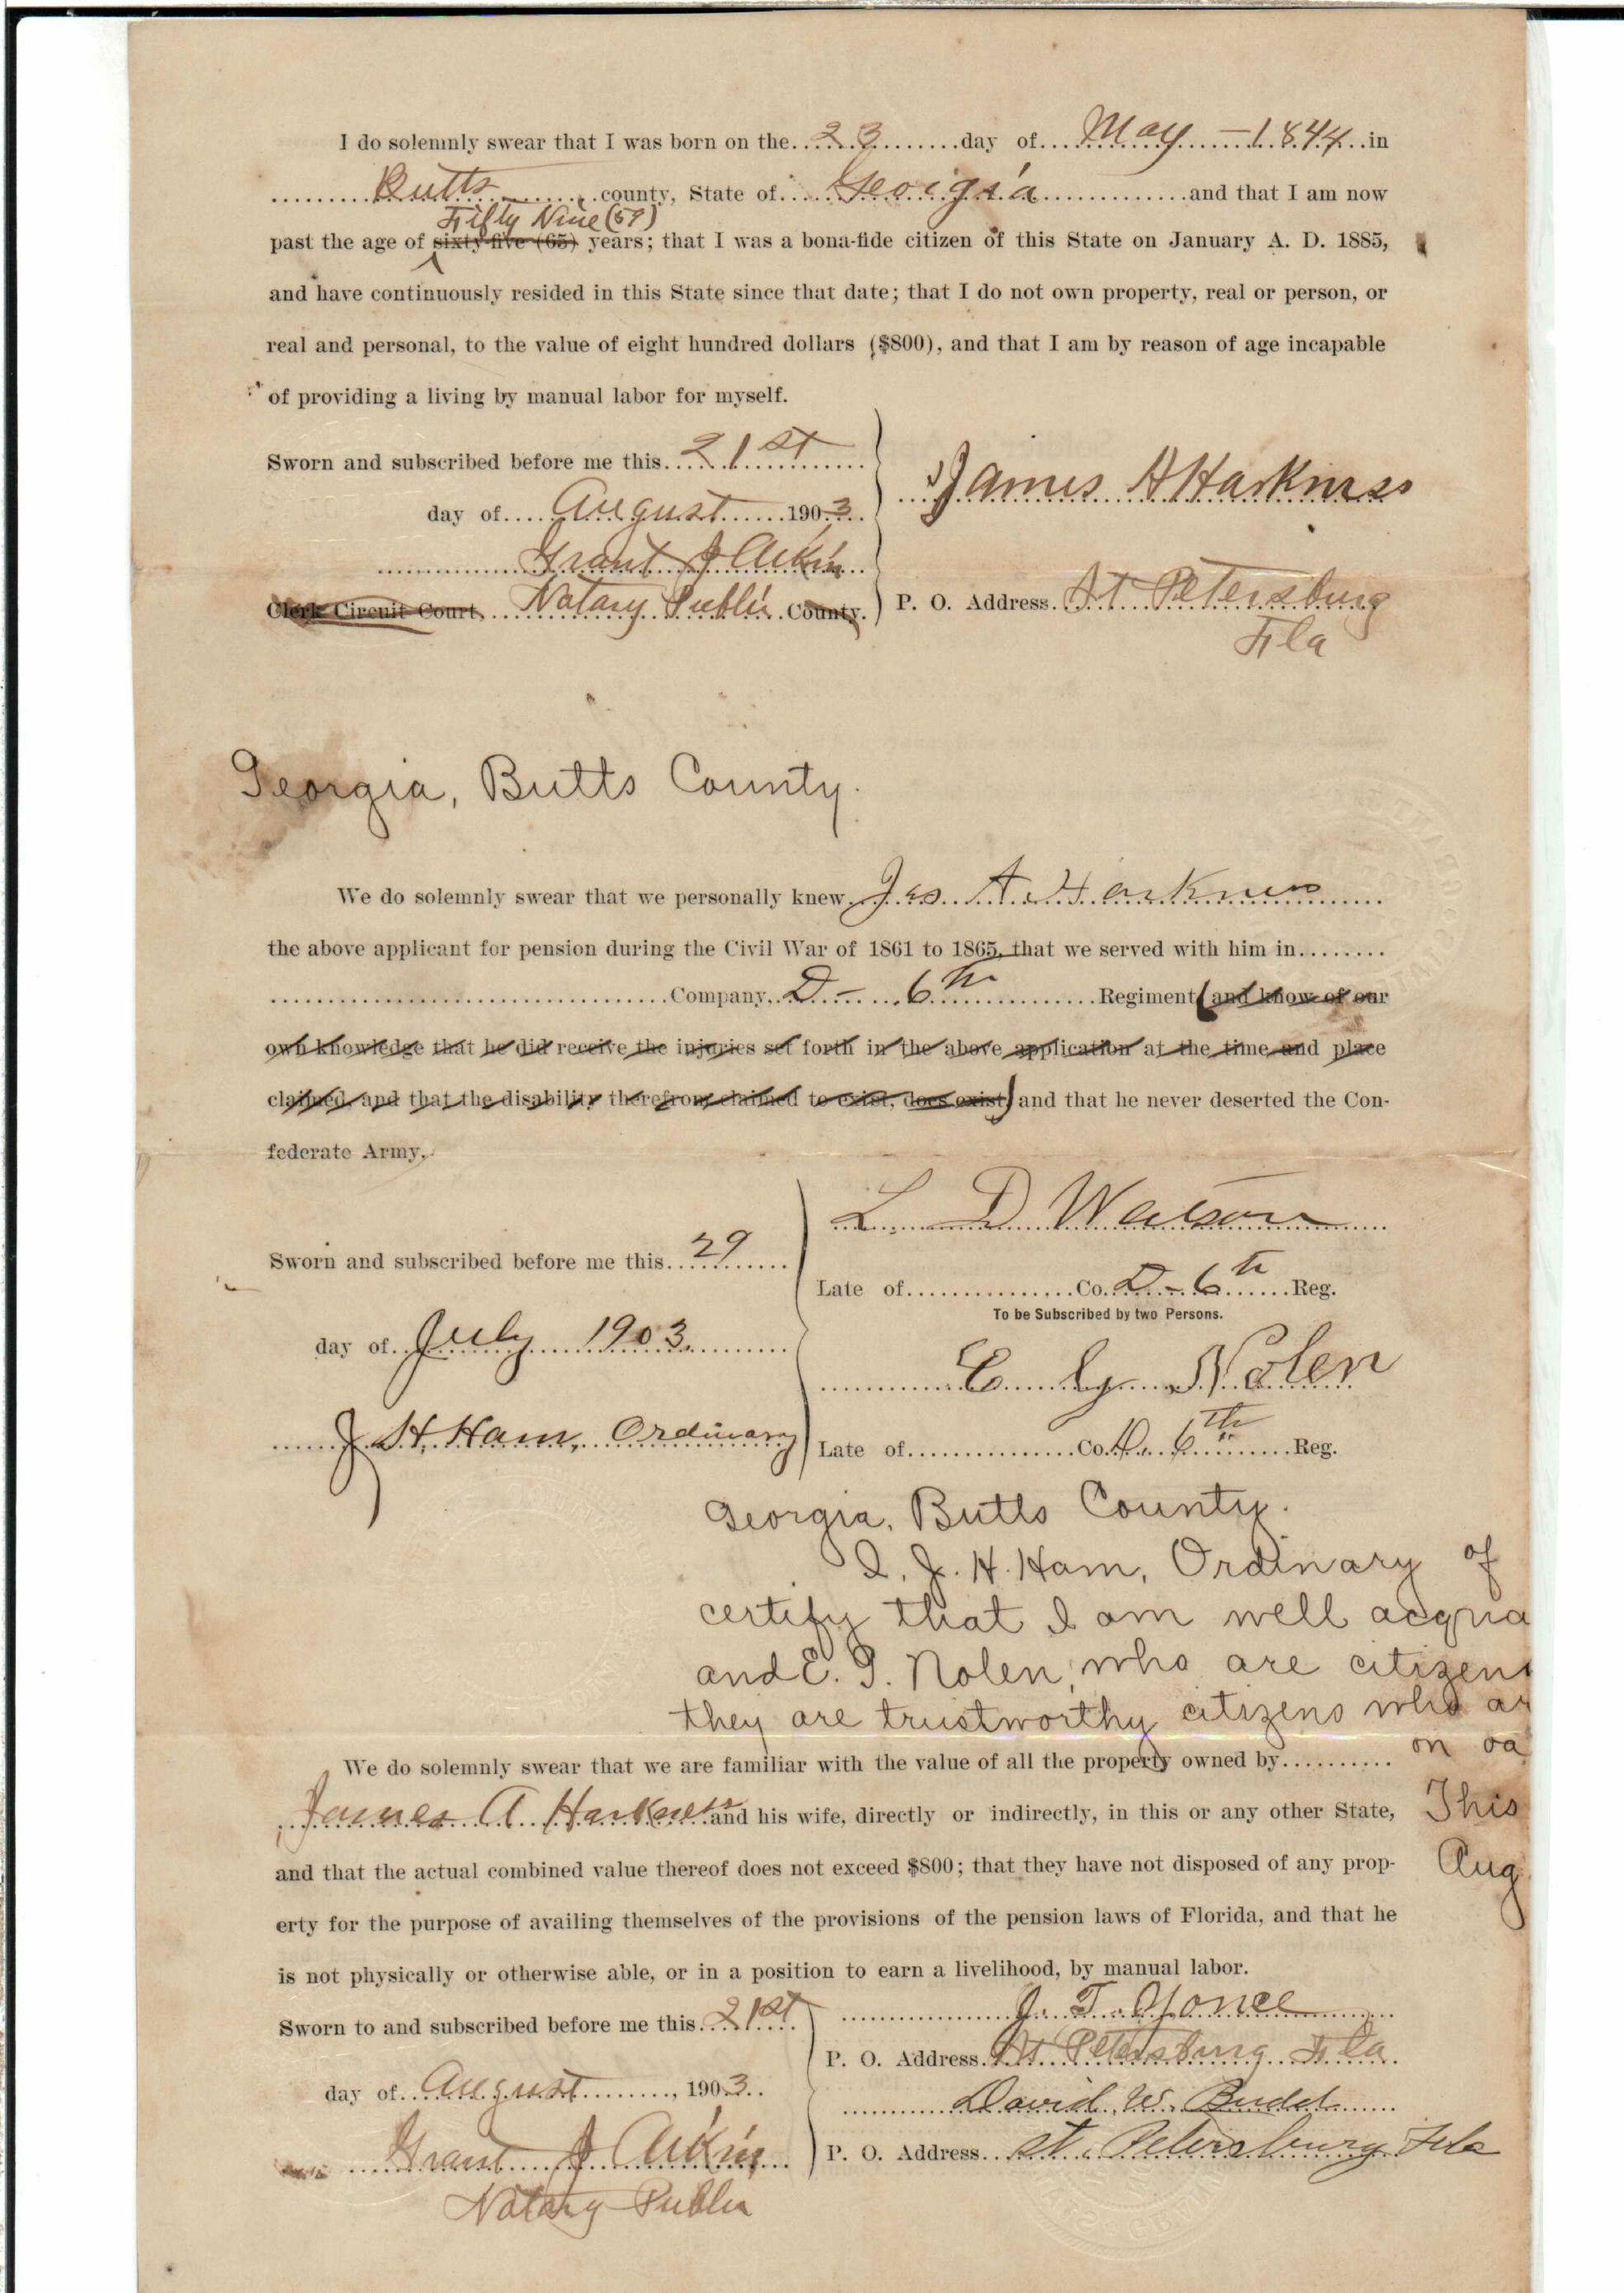 I do solemnly swear that I was born on the 23 day of May - 1844 in
Butts county, State of Georgia and that I am now
Fifty Nine (59)
past the age of sixty-five (65) years; that I was a bona-fide citizen of this State on January A. D. 1885,
and have continuously resided in this State since that date; that I do not own property, real or person, or
real and personal, to the value of eight hundred dollars ($800), and that I am by reason of age incapable
of providing a living by manual labor for myself.
Sworn and subscribed before me this 21st
day of August 1903
James A Harkness
Grant J Aikin
Clerk Circuit Court, Notary Public County.
P. O. Address. St Petersburg
Fla
Georgia, Butts County.
We do solemnly swear that we personally knew Jas A. Harkness
the above applicant for pension during the Civil War of 1861 to 1865, that we served with him in
Company D - 6th Regiment (and know of our
own knowledge that he did receive the injuries set forth in the above application at the time and place
claimed, and that the disability therefrom claimed to exist, does exist) and that he never deserted the Con-
federate Army.
L. D Watson
Sworn and subscribed before me this 29
Late of Co. D - 6th Reg.
To be Subscribed by two Persons.
day of July 1903.
E. G. Nolen
J. H. Ham, Ordinary
Late of Co. D. 6th Reg.
Georgia, Butts County.
I, J. H. Ham, Ordinary of
certify that I am well acqua
and E. G. Nolen, who are citizens
they are trustworthy citizens who ar
on oa
We do solemnly swear that we are familiar with the value of all the property owned by
This
James A. Harkness and his wife, directly or indirectly, in this or any other State,
Aug
and that the actual combined value thereof does not exceed $800; that they have not disposed of any prop-
erty for the purpose of availing themselves of the provisions of the pension laws of Florida, and that he
is not physically or otherwise able, or in a position to earn a livelihood, by manual labor.
Sworn to and subscribed before me this 21st
J. T. Yonce
P. O. Address. St Petersburg Fla
day of August, 1903
David W. Budd
Grant J Aikin
P. O. Address. St. Petersburg Fla
Notary Public